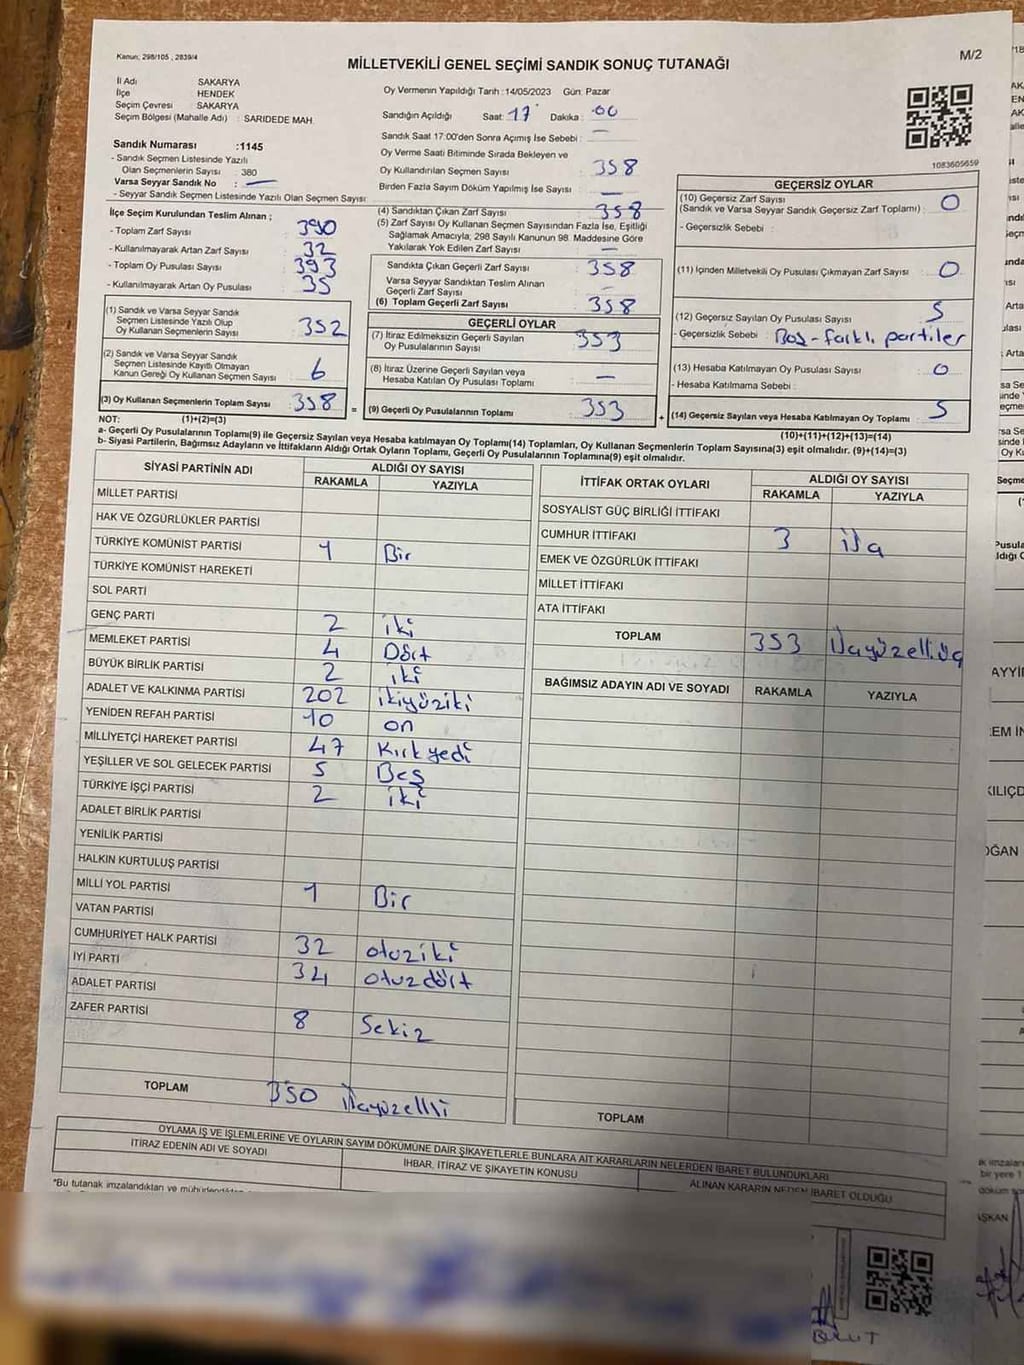 Kanun: 298/105 , 2839/4
M/2
MİLLETVEKİLİ GENEL SEÇİMİ SANDIK SONUÇ TUTANAĞI
İl Adı SAKARYA
İlçe HENDEK
Seçim Çevresi : SAKARYA
Seçim Bölgesi (Mahalle Adı) : SARIDEDE MAH.
Sandık Numarası :1145
- Sandık Seçmen Listesinde Yazılı
Olan Seçmenlerin Sayısı : 380
Varsa Seyyar Sandık No : —
- Seyyar Sandık Seçmen Listesinde Yazılı Olan Seçmen Sayısı :
Oy Vermenin Yapıldığı Tarih :14/05/2023 Gün: Pazar
Sandığın Açıldığı Saat: 17 Dakika : 00
Sandık Saat 17:00'den Sonra Açılmış İse Sebebi : —
Oy Verme Saati Bitiminde Sırada Bekleyen ve
Oy Kullandırılan Seçmen Sayısı 358
Birden Fazla Sayım Döküm Yapılmış İse Sayısı : —
1083605659
İlçe Seçim Kurulundan Teslim Alınan ;
- Toplam Zarf Sayısı : 390
- Kullanılmayarak Artan Zarf Sayısı : 32
- Toplam Oy Pusulası Sayısı : 393
- Kullanılmayarak Artan Oy Pusulası : 35
(1) Sandık ve Varsa Seyyar Sandık
Seçmen Listesinde Yazılı Olup
Oy Kullanan Seçmenlerin Sayısı : 352
(2) Sandık ve Varsa Seyyar Sandık
Seçmen Listesinde Kayıtlı Olmayan
Kanun Gereği Oy Kullanan Seçmen Sayısı : 6
(3) Oy Kullanan Seçmenlerin Toplam Sayısı : 358
(4) Sandıktan Çıkan Zarf Sayısı : 358
(5) Zarf Sayısı Oy Kullanan Seçmen Sayısından Fazla İse, Eşitliği
Sağlamak Amacıyla, 298 Sayılı Kanunun 98. Maddesine Göre
Yakılarak Yok Edilen Zarf Sayısı : —
Sandıkta Çıkan Geçerli Zarf Sayısı : 358
Varsa Seyyar Sandıktan Teslim Alınan
Geçerli Zarf Sayısı : —
(6) Toplam Geçerli Zarf Sayısı : 358
GEÇERLİ OYLAR
(7) İtiraz Edilmeksizin Geçerli Sayılan
Oy Pusulalarının Sayısı : 353
(8) İtiraz Üzerine Geçerli Sayılan veya
Hesaba Katılan Oy Pusulası Toplamı : —
= (9) Geçerli Oy Pusulalarının Toplamı : 353 +
GEÇERSİZ OYLAR
(10) Geçersiz Zarf Sayısı
(Sandık ve Varsa Seyyar Sandık Geçersiz Zarf Toplamı) : 0
- Geçersizlik Sebebi :
(11) İçinden Milletvekili Oy Pusulası Çıkmayan Zarf Sayısı : 0
(12) Geçersiz Sayılan Oy Pusulası Sayısı : 5
- Geçersizlik Sebebi : Boş-farklı partiler
(13) Hesaba Katılmayan Oy Pusulası Sayısı : 0
- Hesaba Katılmama Sebebi :
(14) Geçersiz Sayılan veya Hesaba Katılmayan Oy Toplamı : 5
NOT: (1)+(2)=(3)
(10)+(11)+(12)+(13)=(14)
a- Geçerli Oy Pusulalarının Toplamı(9) ile Geçersiz Sayılan veya Hesaba katılmayan Oy Toplamı(14) Toplamları, Oy Kullanan Seçmenlerin Toplam Sayısına(3) eşit olmalıdır. (9)+(14)=(3)
b- Siyasi Partilerin, Bağımsız Adayların ve İttifakların Aldığı Ortak Oyların Toplamı, Geçerli Oy Pusulalarının Toplamına(9) eşit olmalıdır.
SİYASİ PARTİNİN ADI ALDIĞI OY SAYISI
RAKAMLA YAZIYLA
MİLLET PARTİSİ
HAK VE ÖZGÜRLÜKLER PARTİSİ
TÜRKİYE KOMÜNİST PARTİSİ 1 Bir
TÜRKİYE KOMÜNİST HAREKETİ
SOL PARTİ
GENÇ PARTİ 2 iki
MEMLEKET PARTİSİ 4 Dört
BÜYÜK BİRLİK PARTİSİ 2 iki
ADALET VE KALKINMA PARTİSİ 202 ikiyüziki
YENİDEN REFAH PARTİSİ 10 on
MİLLİYETÇİ HAREKET PARTİSİ 47 Kırkyedi
YEŞİLLER VE SOL GELECEK PARTİSİ 5 Beş
TÜRKİYE İŞÇİ PARTİSİ 2 iki
ADALET BİRLİK PARTİSİ
YENİLİK PARTİSİ
HALKIN KURTULUŞ PARTİSİ
MİLLİ YOL PARTİSİ 1 Bir
VATAN PARTİSİ
CUMHURİYET HALK PARTİSİ 32 otuziki
İYİ PARTİ 34 otuzdört
ADALET PARTİSİ
ZAFER PARTİSİ 8 Sekiz
TOPLAM 350 Üçyüzelli
İTTİFAK ORTAK OYLARI ALDIĞI OY SAYISI
RAKAMLA YAZIYLA
SOSYALİST GÜÇ BİRLİĞİ İTTİFAKI
CUMHUR İTTİFAKI 3 Üç
EMEK VE ÖZGÜRLÜK İTTİFAKI
MİLLET İTTİFAKI
ATA İTTİFAKI
TOPLAM 353 Üçyüzelliüç
BAĞIMSIZ ADAYIN ADI VE SOYADI RAKAMLA YAZIYLA
TOPLAM
OYLAMA İŞ VE İŞLEMLERİNE VE OYLARIN SAYIM DÖKÜMÜNE DAİR ŞİKAYETLERLE BUNLARA AİT KARARLARIN NELERDEN İBARET BULUNDUKLARI
İTİRAZ EDENİN ADI VE SOYADI İHBAR, İTİRAZ VE ŞİKAYETİN KONUSU ALINAN KARARIN NEDEN İBARET OLDUĞU
*Bu tutanak imzalandıktan ve
BULUT